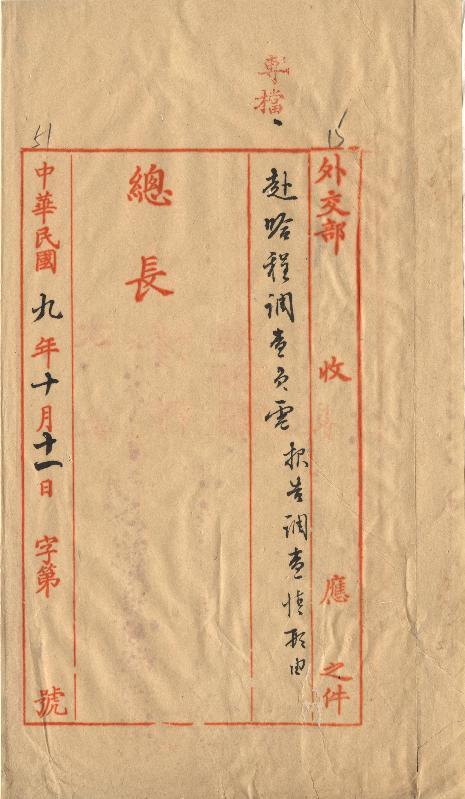 專檔
15
外交部 收 應 之件
赴哈程調查員電 報告調查情形由
總長
51
中華民國九年十月十一日 字第 號